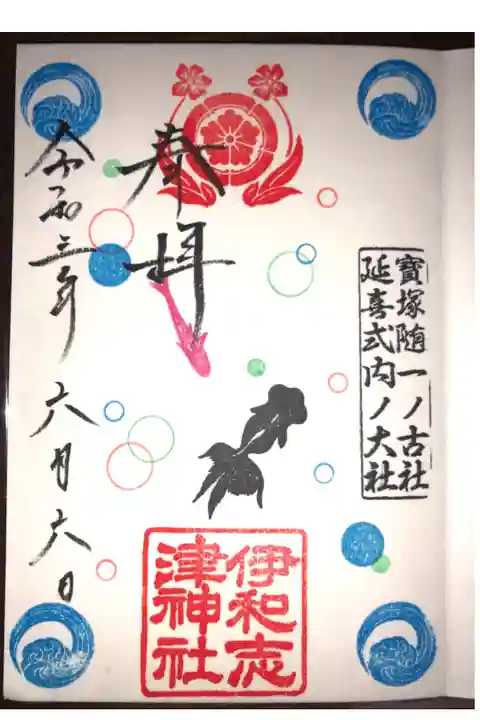 寶塚随一ノ古社
延喜式内ノ大社
奉拝
伊和志
津神社
令和三年六月六日